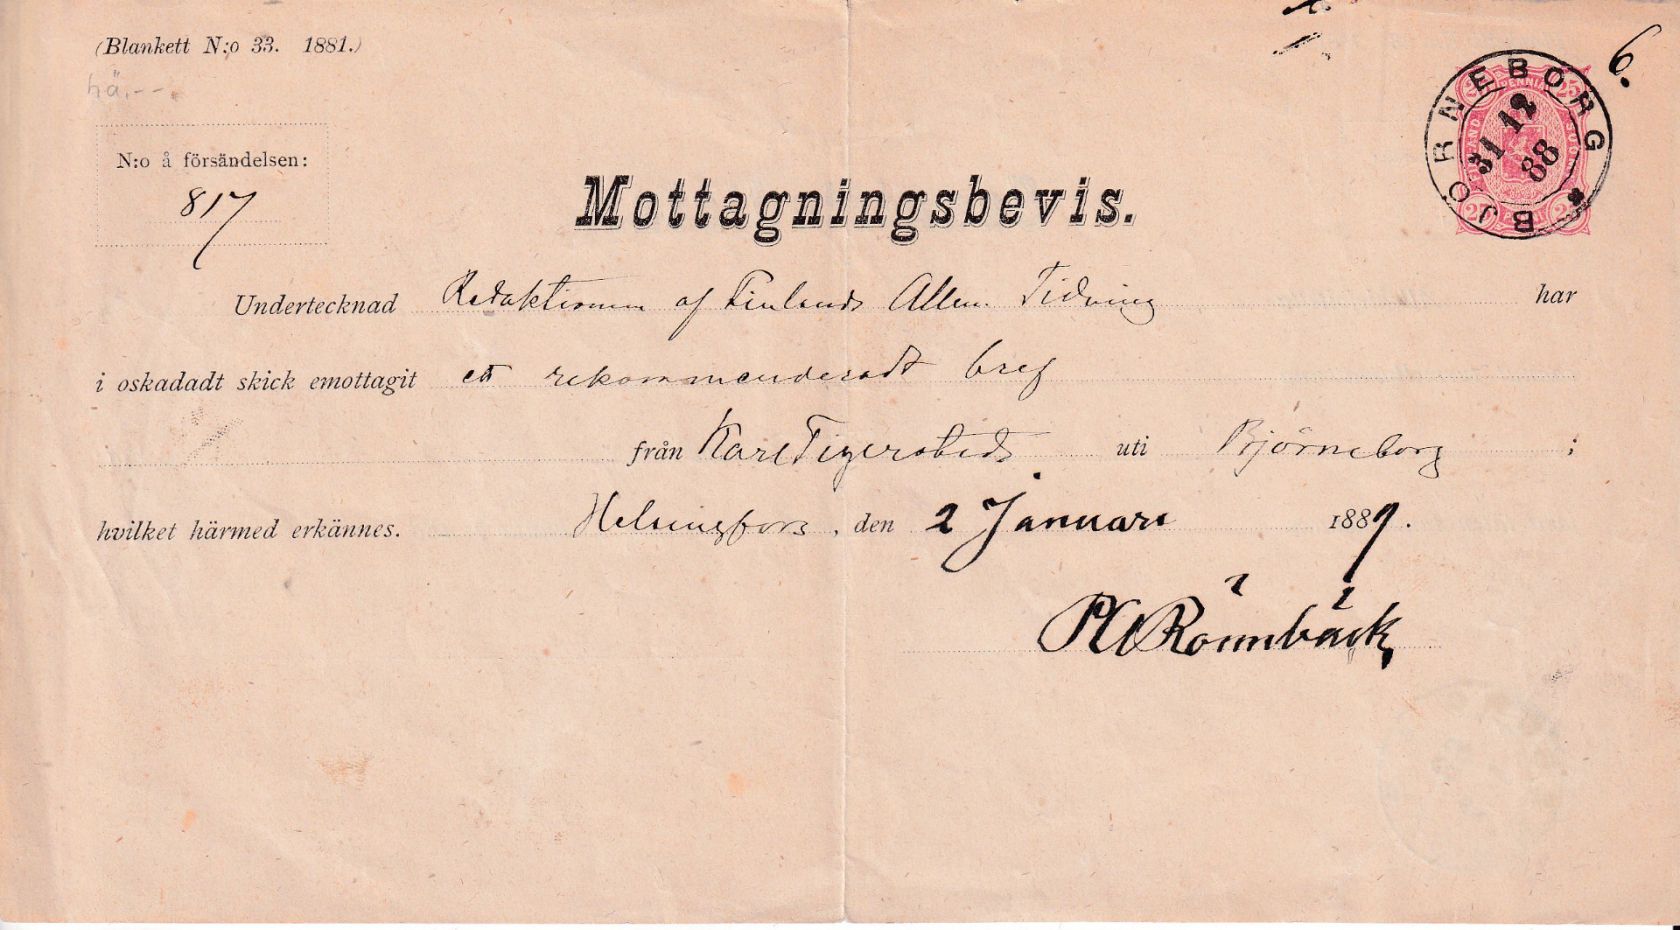 (Blankett N:o 33. 1881.)
6.
BJÖRNEBORG
31 12
88
25 PENNIÄ 25
N:o å försändelsen:
817
Mottagningsbevis.
Undertecknad Redaktionen af Finlands Allm. Tidning har
i oskadadt skick emottagit ett rekommenderadt bref
från Karl Tigerstedt uti Björneborg ;
hvilket härmed erkännes. Helsingfors, den 2 Januari 1889.
Rönnbäck